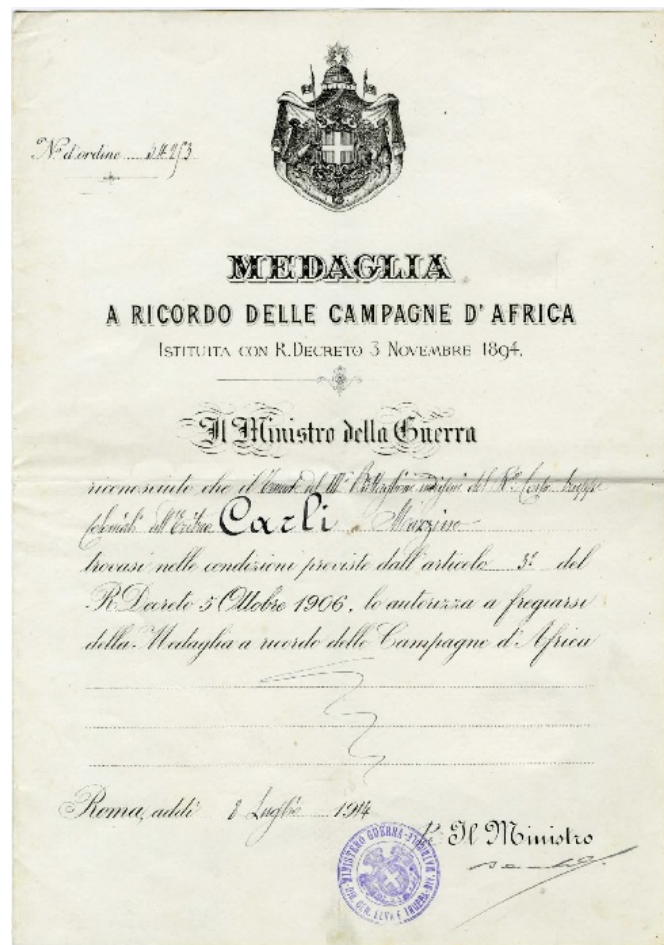 N.º d'ordine
MEDAGLIA
A RICORDO DELLE CAMPAGNE D'AFRICA
ISTITUITA CON R. DECRETO 3 NOVEMBRE 1894.
Il Ministro della Guerra
riconosciuto che il Battaglione indigeni del R.º Corpo truppe
Coloniali dell'Eritrea Carli
trovasi nelle condizioni previste dall'articolo 3º del
R. Decreto 5 Ottobre 1906, lo autorizza a fregiarsi
della Medaglia a ricordo delle Campagne d'Africa
Roma, addì 8 Luglio 1914
Il Ministro
MINISTERO GUERRA
DIR. GEN. LEVA E TRUPPA